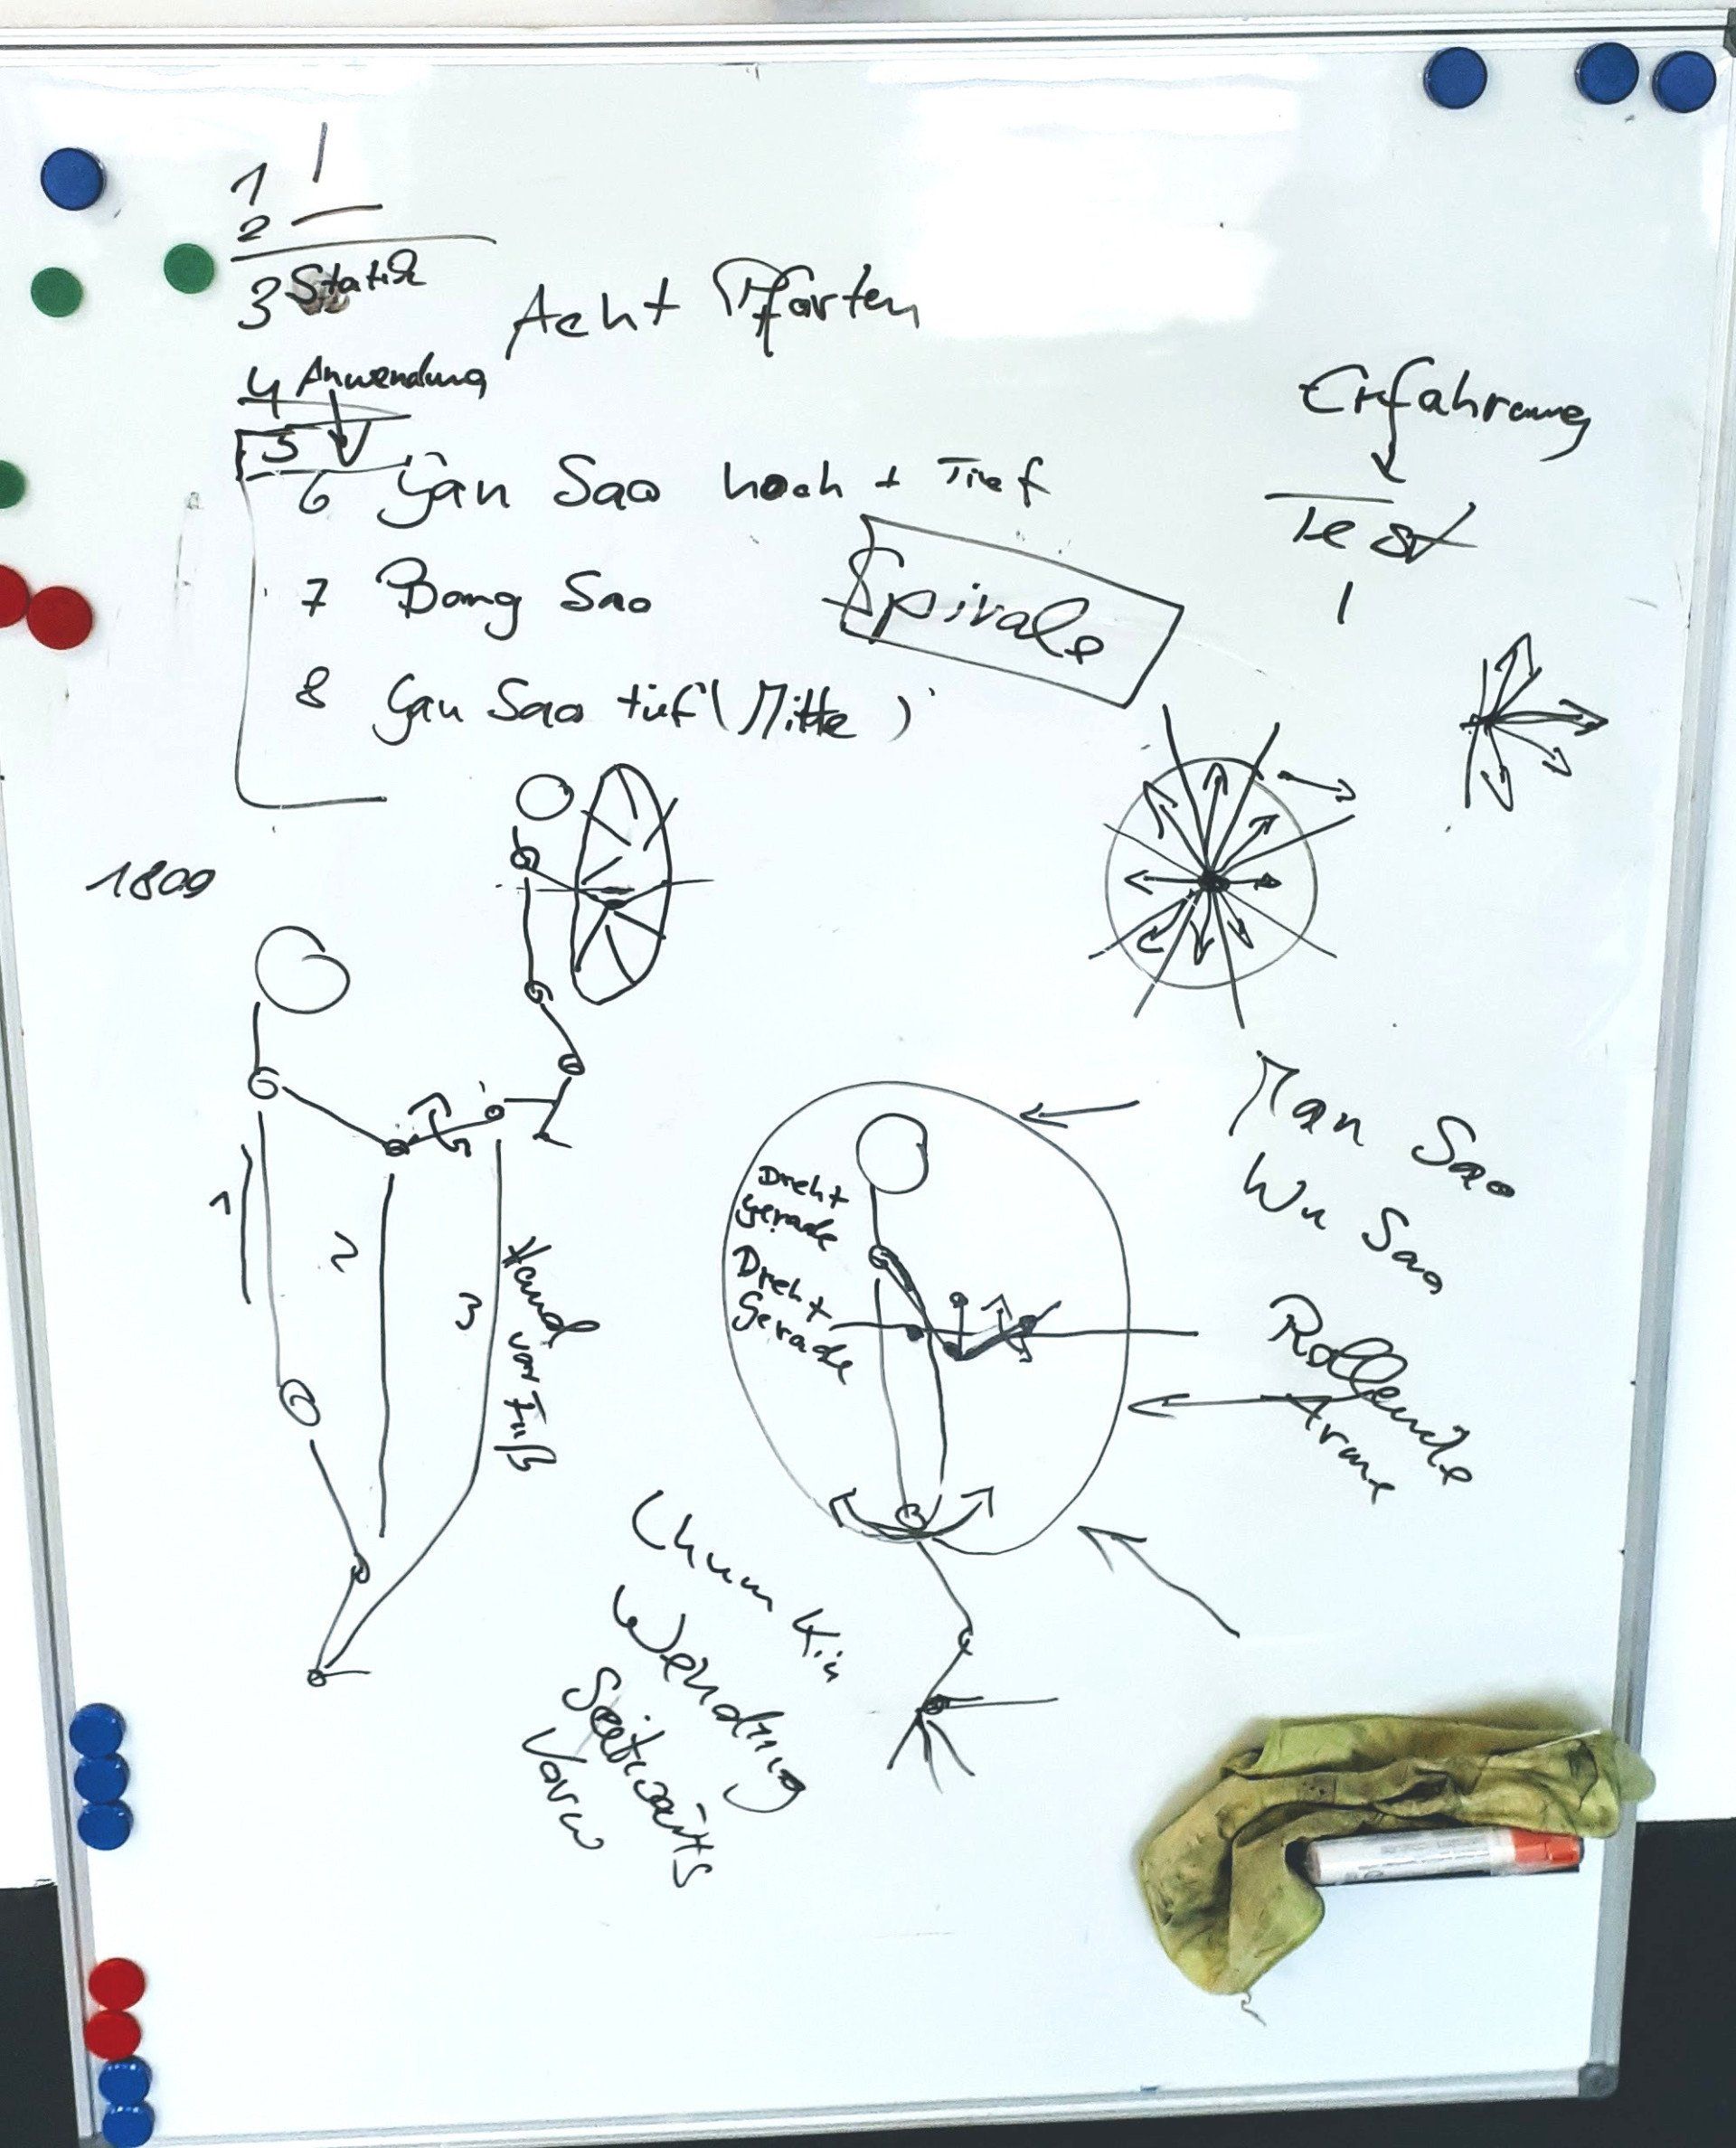 1
2
3 Statik
Acht Pforten
4 Anwendung
5
6 Gan Sao hoch + Tief
7 Bong Sao
8 Gan Sao tief (Mitte)
Spirale
Erfahrung
Test
1800
1
2
3
Hand vor Fuß
Dreht
gerade
Dreht
Gerade
Man Sao
Wu Sao
Rollende
Arme
Chum Kiu
Wendung
Seitwärts
Vorw